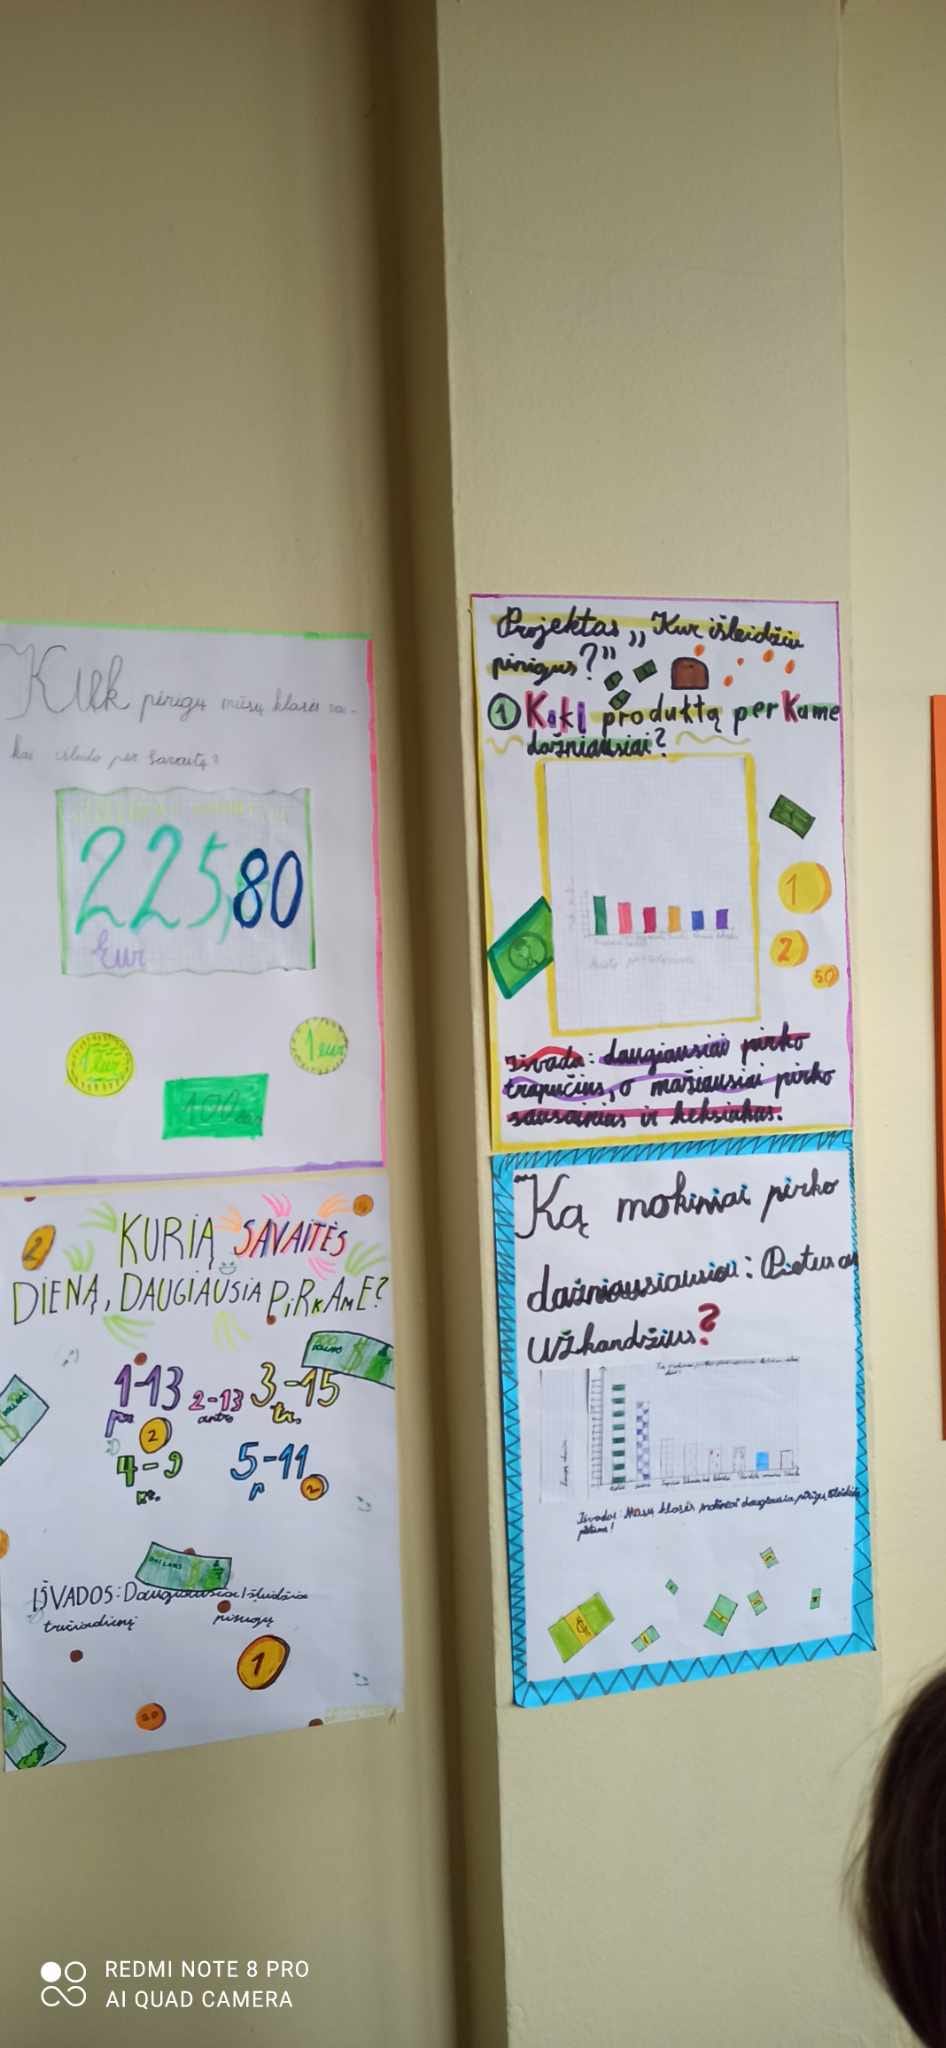 Kiek pinigų mūsų klasės vai-
kai išleido per savaitę?
225,80
Eur
1 eur
1 eur
100
Projektas „Kur išleidžiu
pinigus?”
1 Kokį produktą perkame
dažniausiai?
1
2
50
Išvada: daugiausiai pirko
trapučius, o mažiausiai pirko
sausainius ir keksiukus.
2
KURIĄ SAVAITĖS
DIENĄ, DAUGIAUSIA PiRKAME?
1-13 2-13 3-15
antr. tr.
2
4-9 5-11
kt. p
2
IŠVADOS: Daugiausiai Išleidžia
trečiadienį pinigų
1
20
Ką mokiniai pirko
dažniausiausiai: Pietus ar
Užkandžius?
Išvados: Mūsų klasės mokiniai daugiausia pinigų išleidžia
pietums!
REDMI NOTE 8 PRO
AI QUAD CAMERA